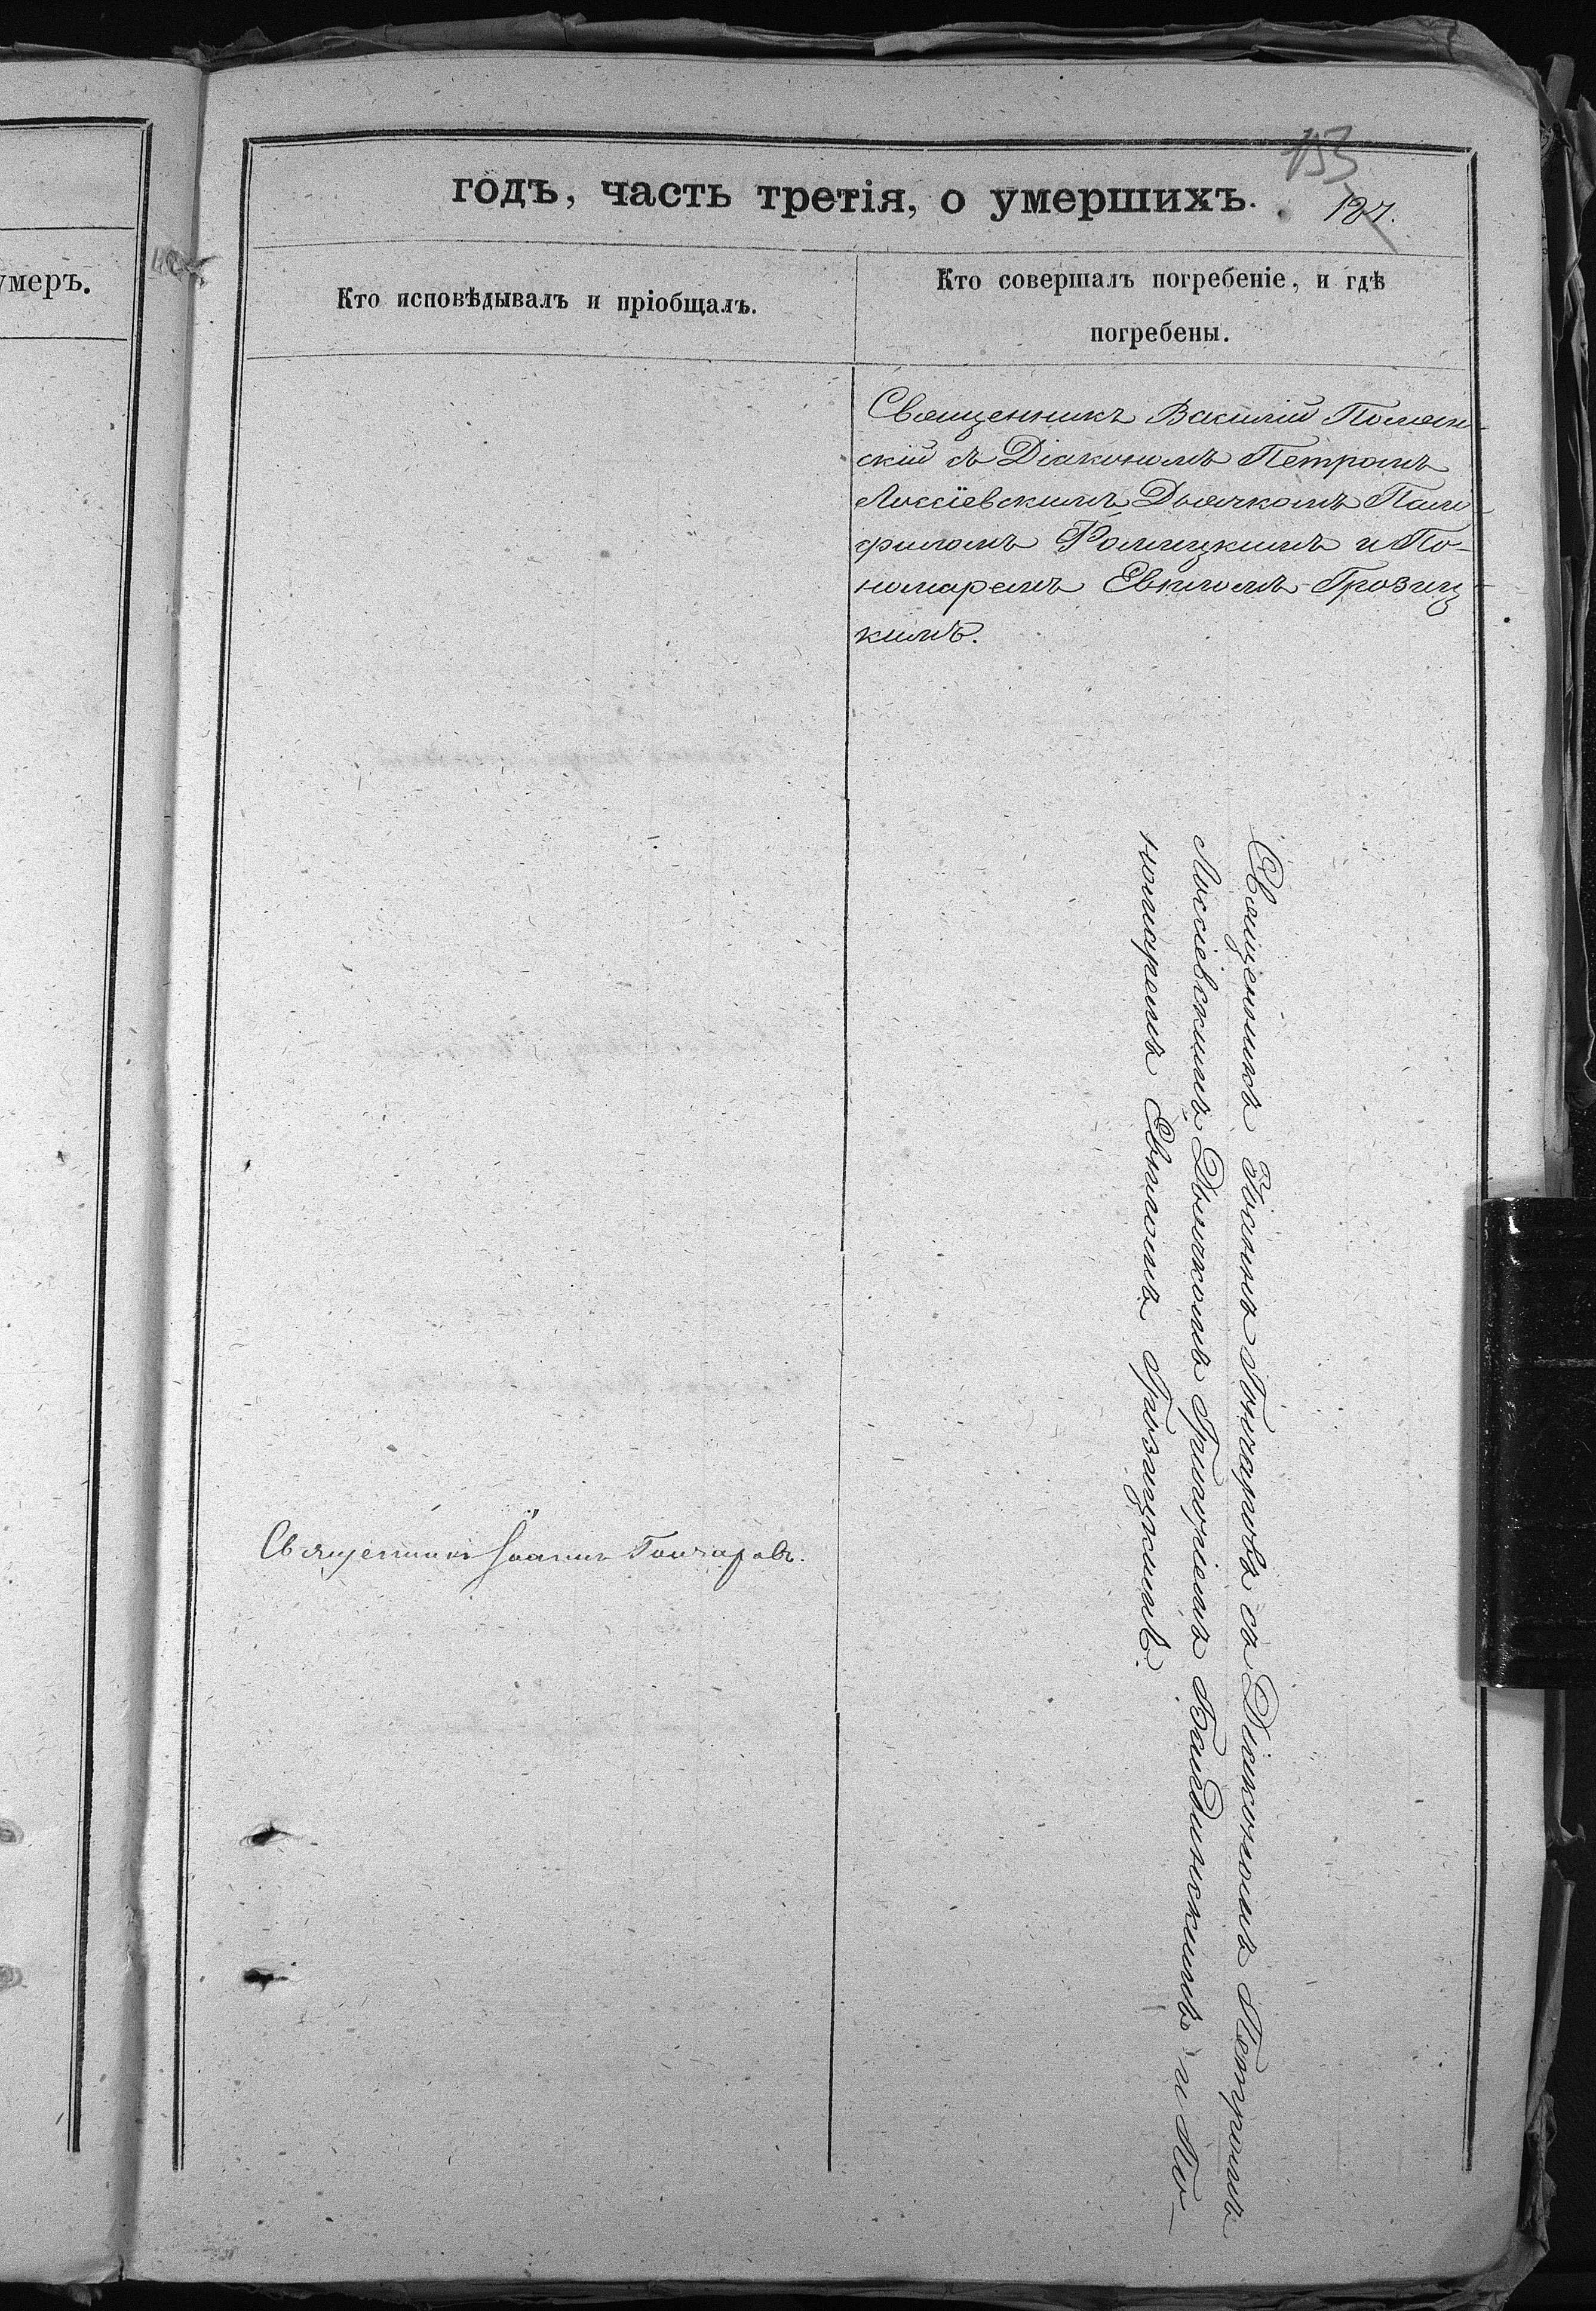 умеръ.
153
годъ, часть третія, о умершихъ.
127.
Кто исповѣдывалъ и пріобщалъ.
Кто совершалъ погребеніе, и гдѣ
погребены.
Священникъ Василій Полян-
скій съ Діакономъ Петромъ
Лиссіевскимъ Дьячкомъ Пам-
филомъ Ромицкимъ и По-
номаремъ Евѳиміемъ Грозиц-
кимъ.
Священникъ Іоаннъ Гончаровъ съ Діакономъ Петромъ
Лиссіевскимъ Дьячкомъ Григоріемъ Бандинскимъ и По-
номаремъ Грозицкимъ.
Священникъ Іоаннъ Гончаровъ.